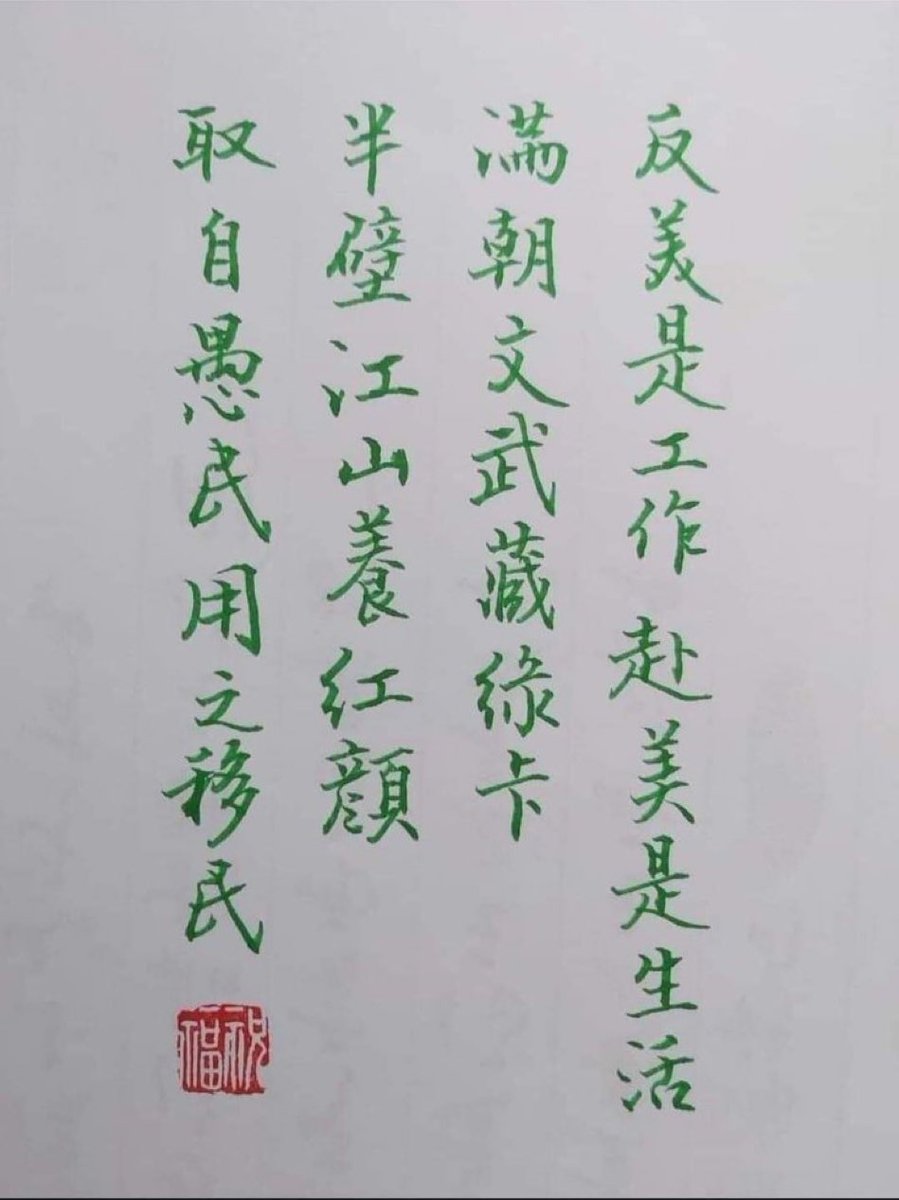 反美是工作赴美是生活
滿朝文武藏綠卡
半壁江山養红顔
取自愚民用之移民
祝福